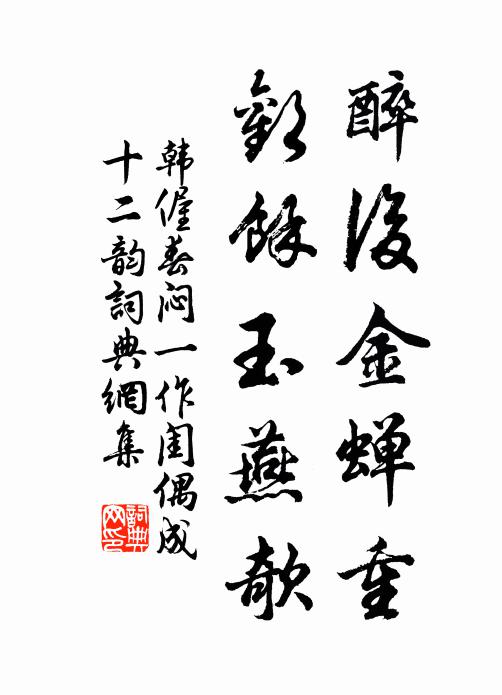 醉後金蝉重
歡餘玉燕欹
韩偓春闷一作闺偶成
十二韵詞典網集
詞典
网印